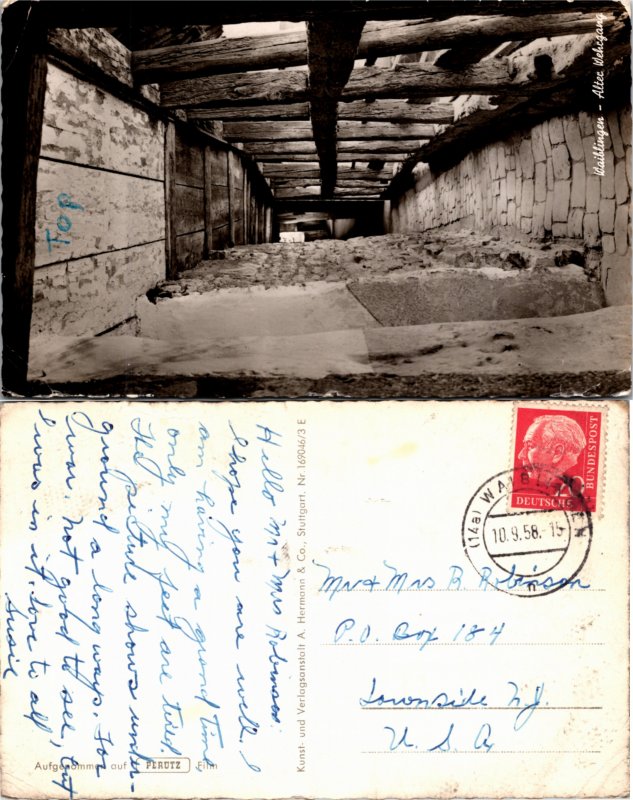 Waiblingen - Alter Wehrgang
Top
Hello Mr & Mrs Robinson.
I hope you are well. I
am having a grand time
only my feet are tired.
This picture shows under-
ground a long ways. For
war. Not good to see, but
I was in it. Love to all
Susie
Kunst- und Verlagsanstalt A. Hermann & Co., Stuttgart. Nr. 169046/3 E
Aufgenommen auf PERUTZ Film
DEUTSCHE
BUNDESPOST
20
(14a) WAIBLINGEN
10.9.58.-15
n
Mr & Mrs R. Robinson
P.O. Box 184
Townside N.J.
U.S.A